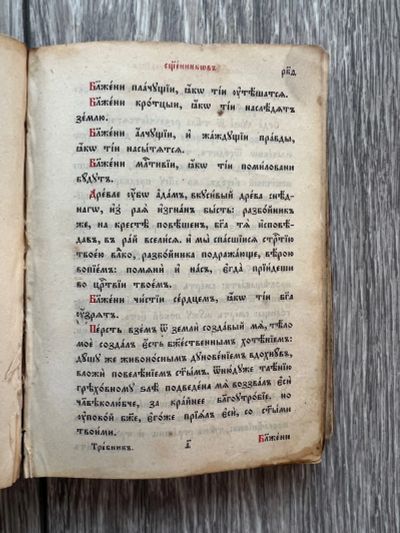 сщ҃е́нникѡвъ
рк҃д
Бл҃же́ни пла́чꙋщїи, ꙗ҆́кѡ ті́и ᲂу҆тѣ́шатсѧ.
Бл҃же́ни кро́тцыи, ꙗ҆́кѡ ті́и наслѣ́дѧтъ
зе́млю.
Бл҃же́ни а҆́лчꙋщїи, и҆ жа́ждꙋщїи пра́вды,
ꙗ҆́кѡ ті́и насы́тѧтсѧ.
Бл҃же́ни мл҃тивїи, ꙗ҆́кѡ ті́и поми́ловани
бꙋ́дꙋтъ.
Дре́вле ᲂу҆́бѡ а҆да́мъ, вкꙋси́вый дре́ва снѣ́д-
нагѡ, и҆з̾ раѧ̀ и҆згна́нъ бы́сть: разбо́йникъ
же, на крⷭ҇тѣ̀ повѣ́шенъ, бг҃а тѧ̀ и҆сповѣ́-
давъ, въ ра́й всели́сѧ. и҆ мы̀ спа́сшїисѧ стрⷭ҇тїю
твое́ю вл҃ко, разбо́йника подража́юще, вѣ́рою
вопїе́мъ: помѧнѝ и҆ на́съ, є҆гда̀ прїи́деши
во црⷭ҇твїи твое́мъ.
Бл҃же́ни чи́стїи се́рдцемъ, ꙗ҆́кѡ ті́и бг҃а
ᲂу҆́зрѧтъ.
Пе́рсть взе́мъ ѿ землѝ созда́вый мѧ̀, тѣ́ло
моѐ созда́лъ є҆сѝ бж҃е́ственнымъ хотѣ́нїемъ:
дꙋ́шꙋ же живоно́снымъ дꙋнове́нїемъ вдохнꙋ́въ,
вложѝ повелѣ́нїемъ ст҃ы́мъ. ѿню́дꙋже тлѣ́нїю
грѣхо́вномꙋ ѕлѣ̀ подведе́на мѧ̀ воззва́лъ є҆сѝ
чл҃вѣколю́бче, за кра́йнее бл҃гоꙋтро́бїе. но
ᲂу҆поко́й бж҃е, є҆го́же прїѧ́лъ є҆сѝ, со ст҃ы́ми
твои́ми.
Тре́бникъ.
Бл҃же́ни